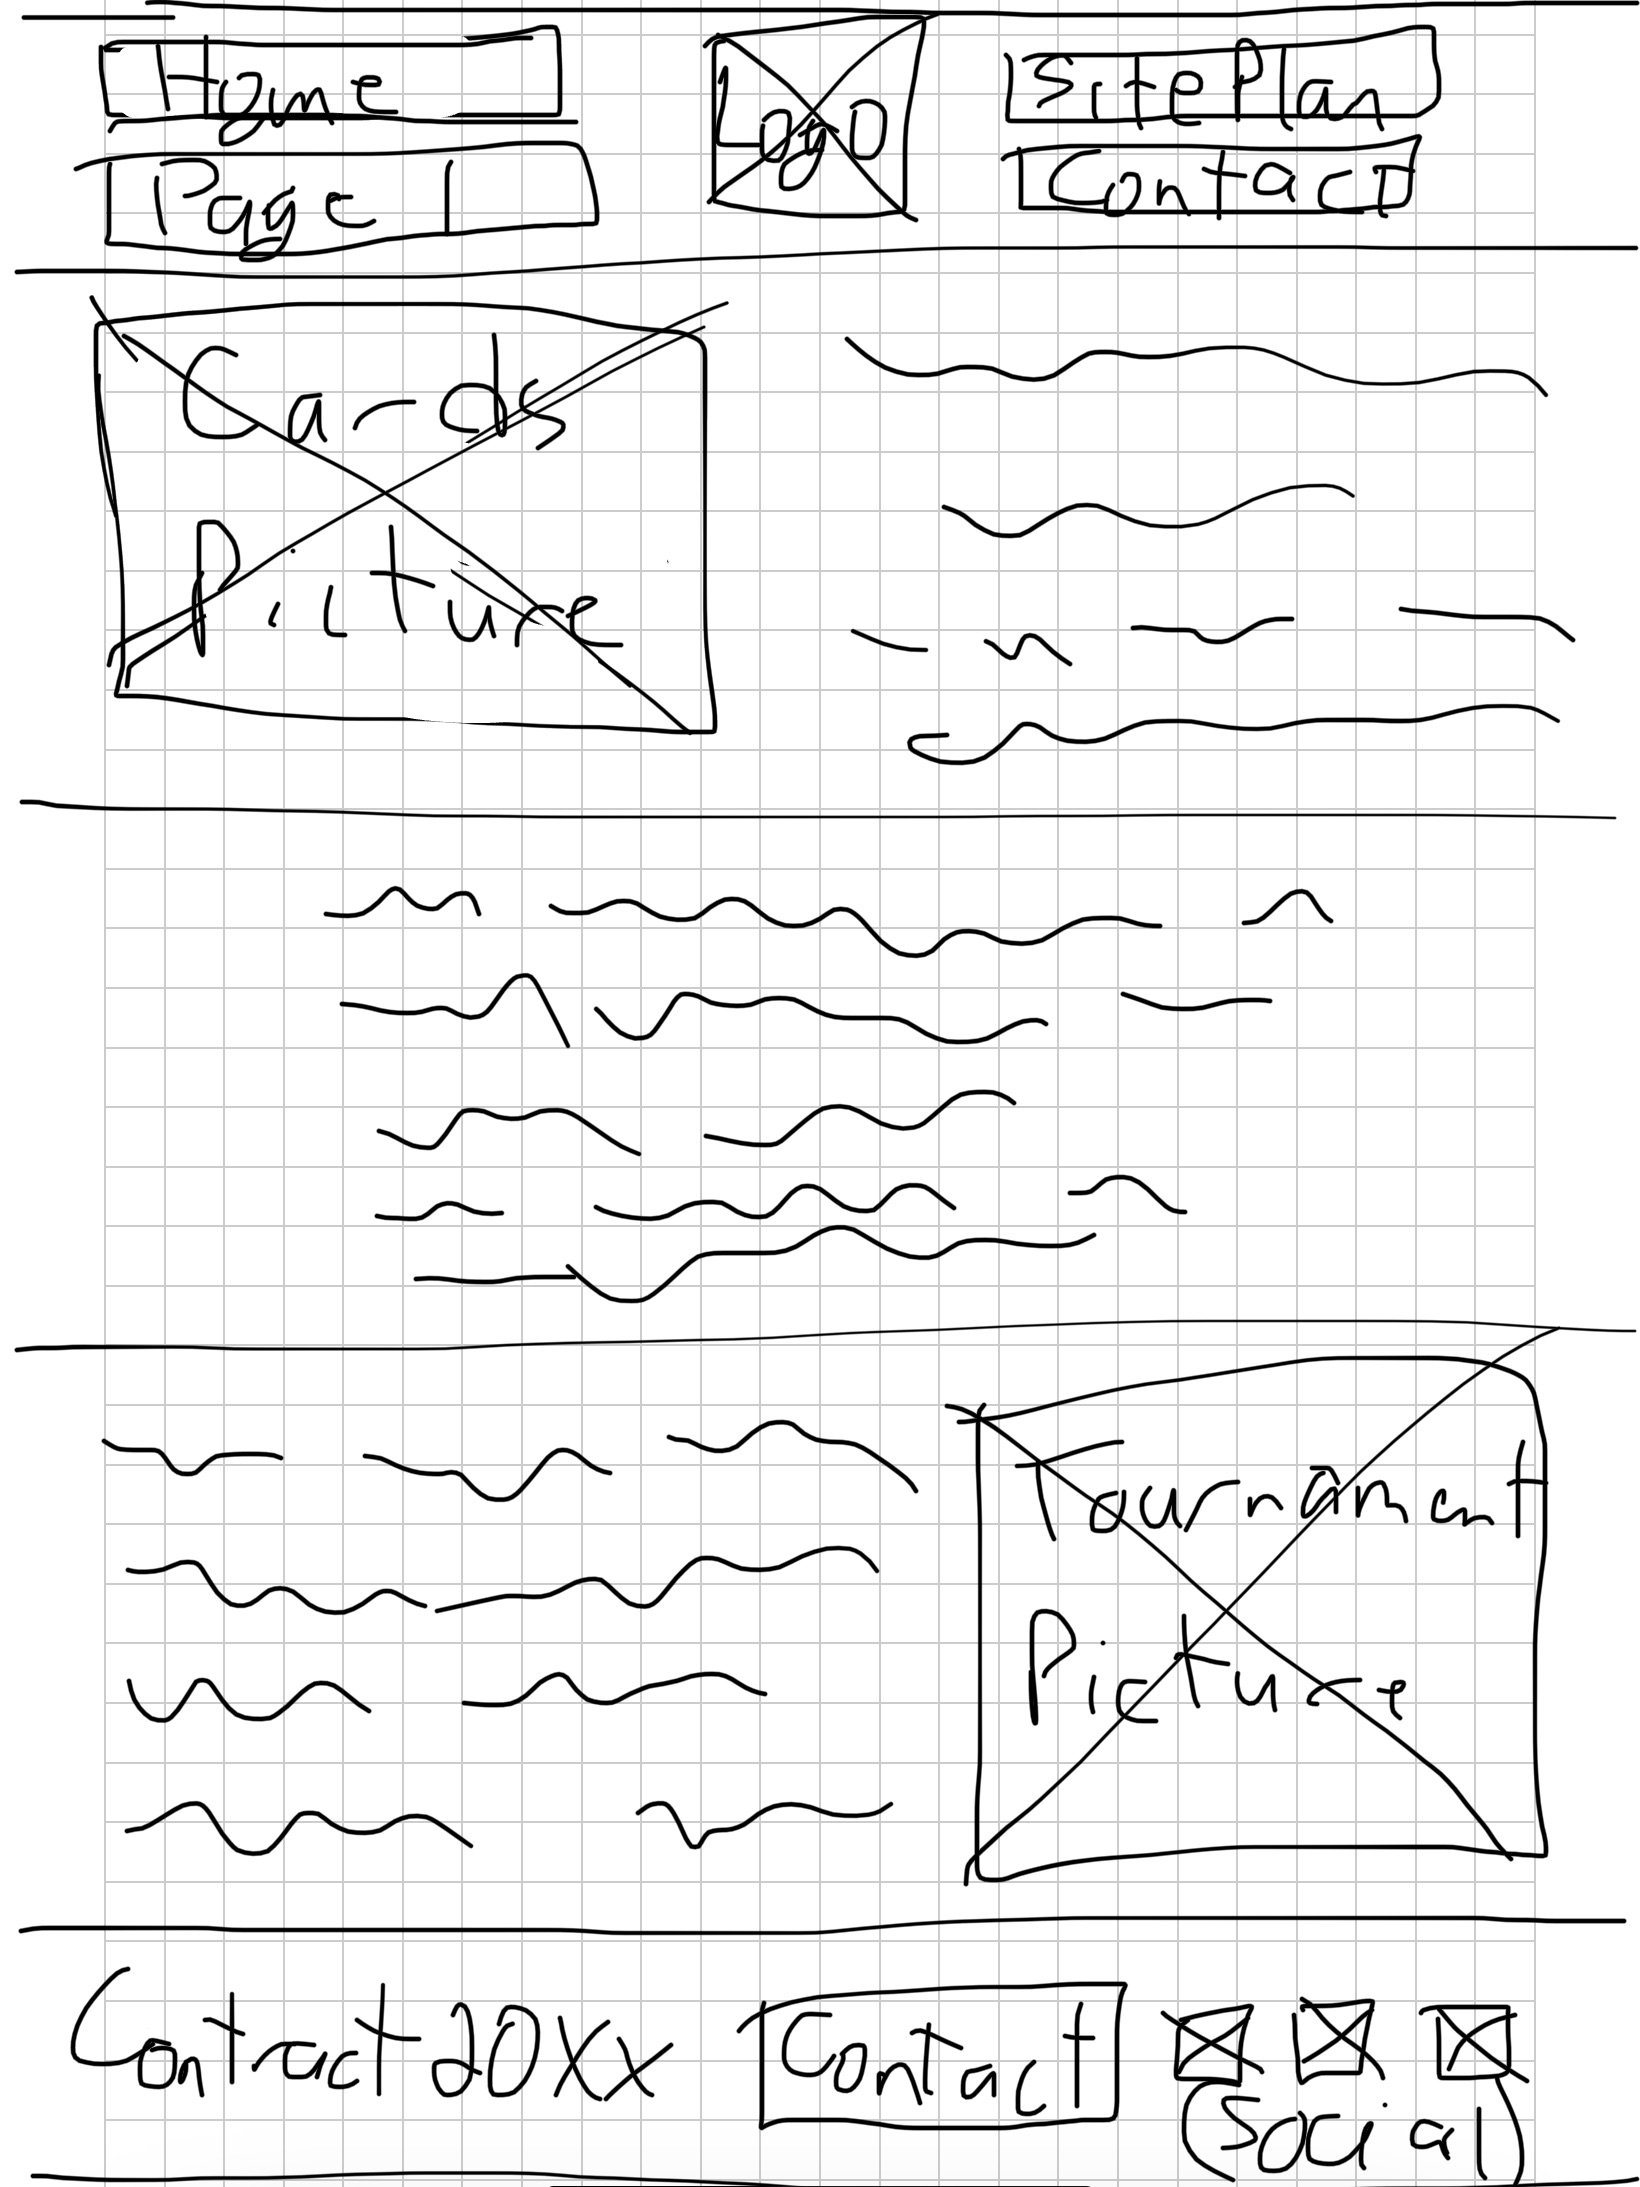 Home
Page 1
Logo
Site Plan
Contact
Cards
Picture
Tournament
Picture
Contract 20XX
Contact
(Social)